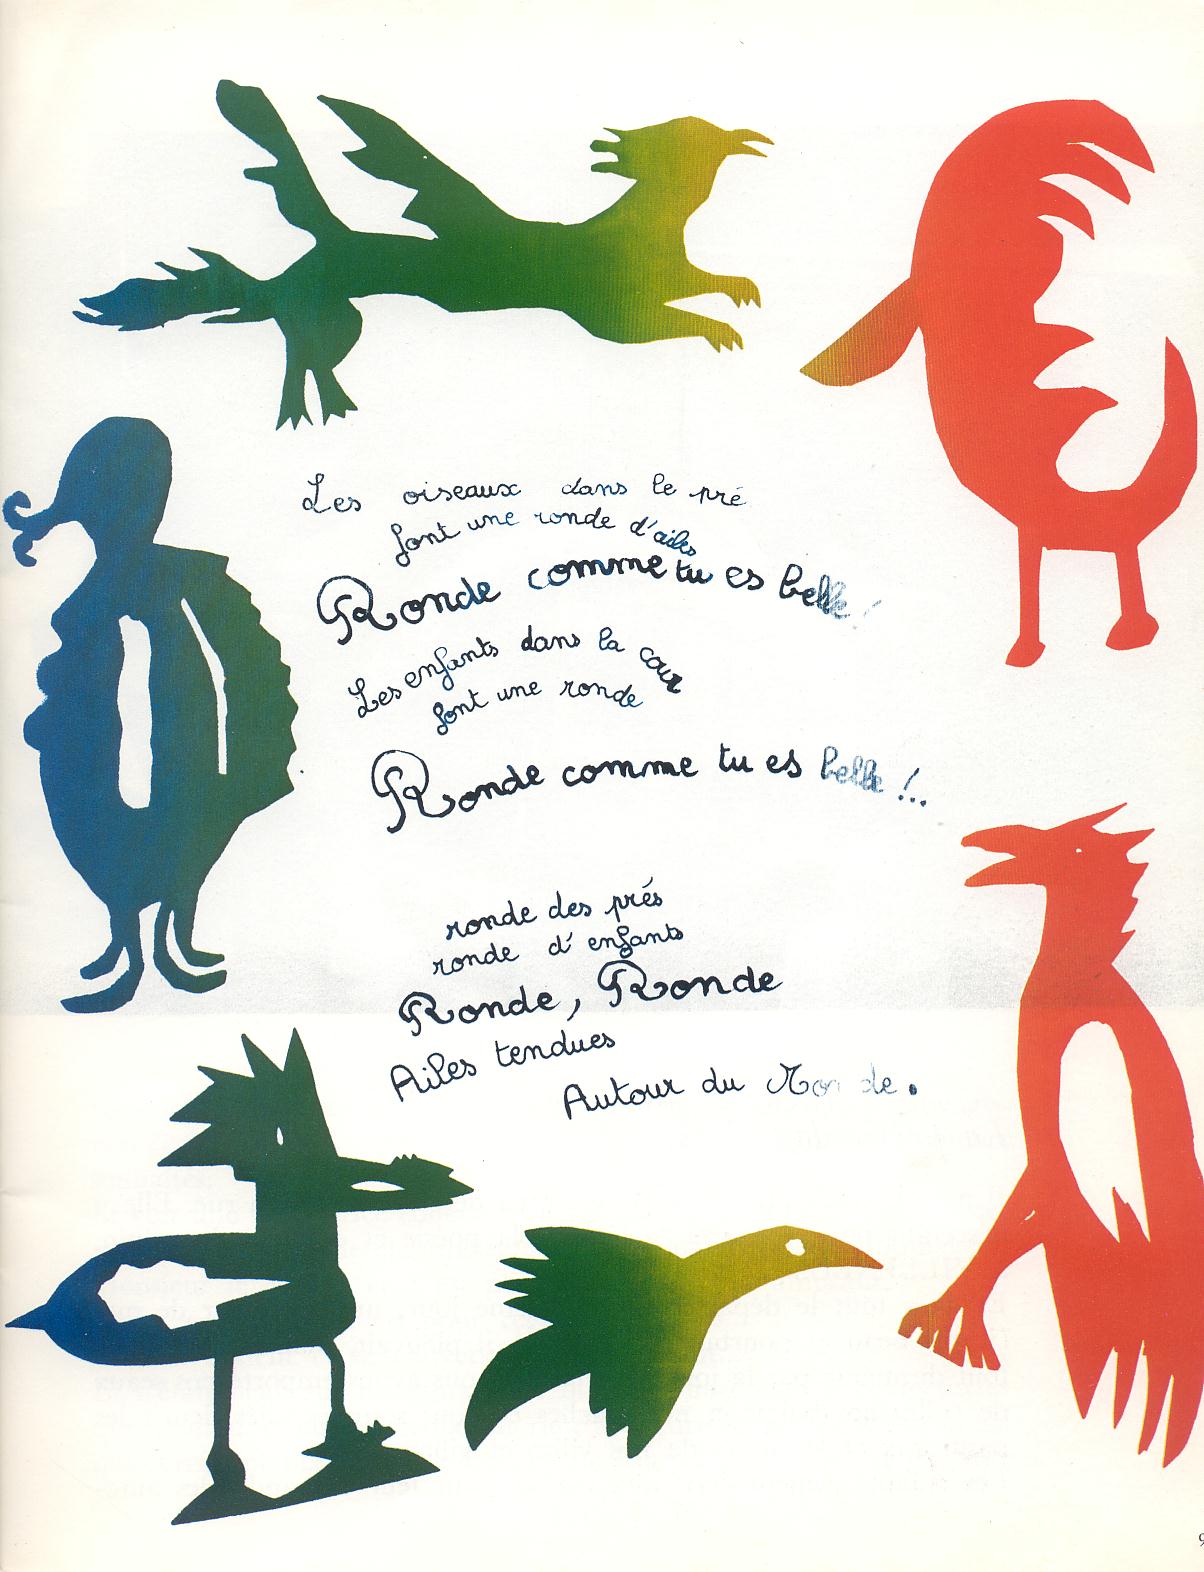 Les oiseaux dans le pré
font une ronde d'ailes
Ronde comme tu es belle !
Les enfants dans la cour
font une ronde
Ronde comme tu es belle !..
ronde des prés
ronde d'enfants
Ronde, Ronde
Ailes tendues
Autour du Monde.
9